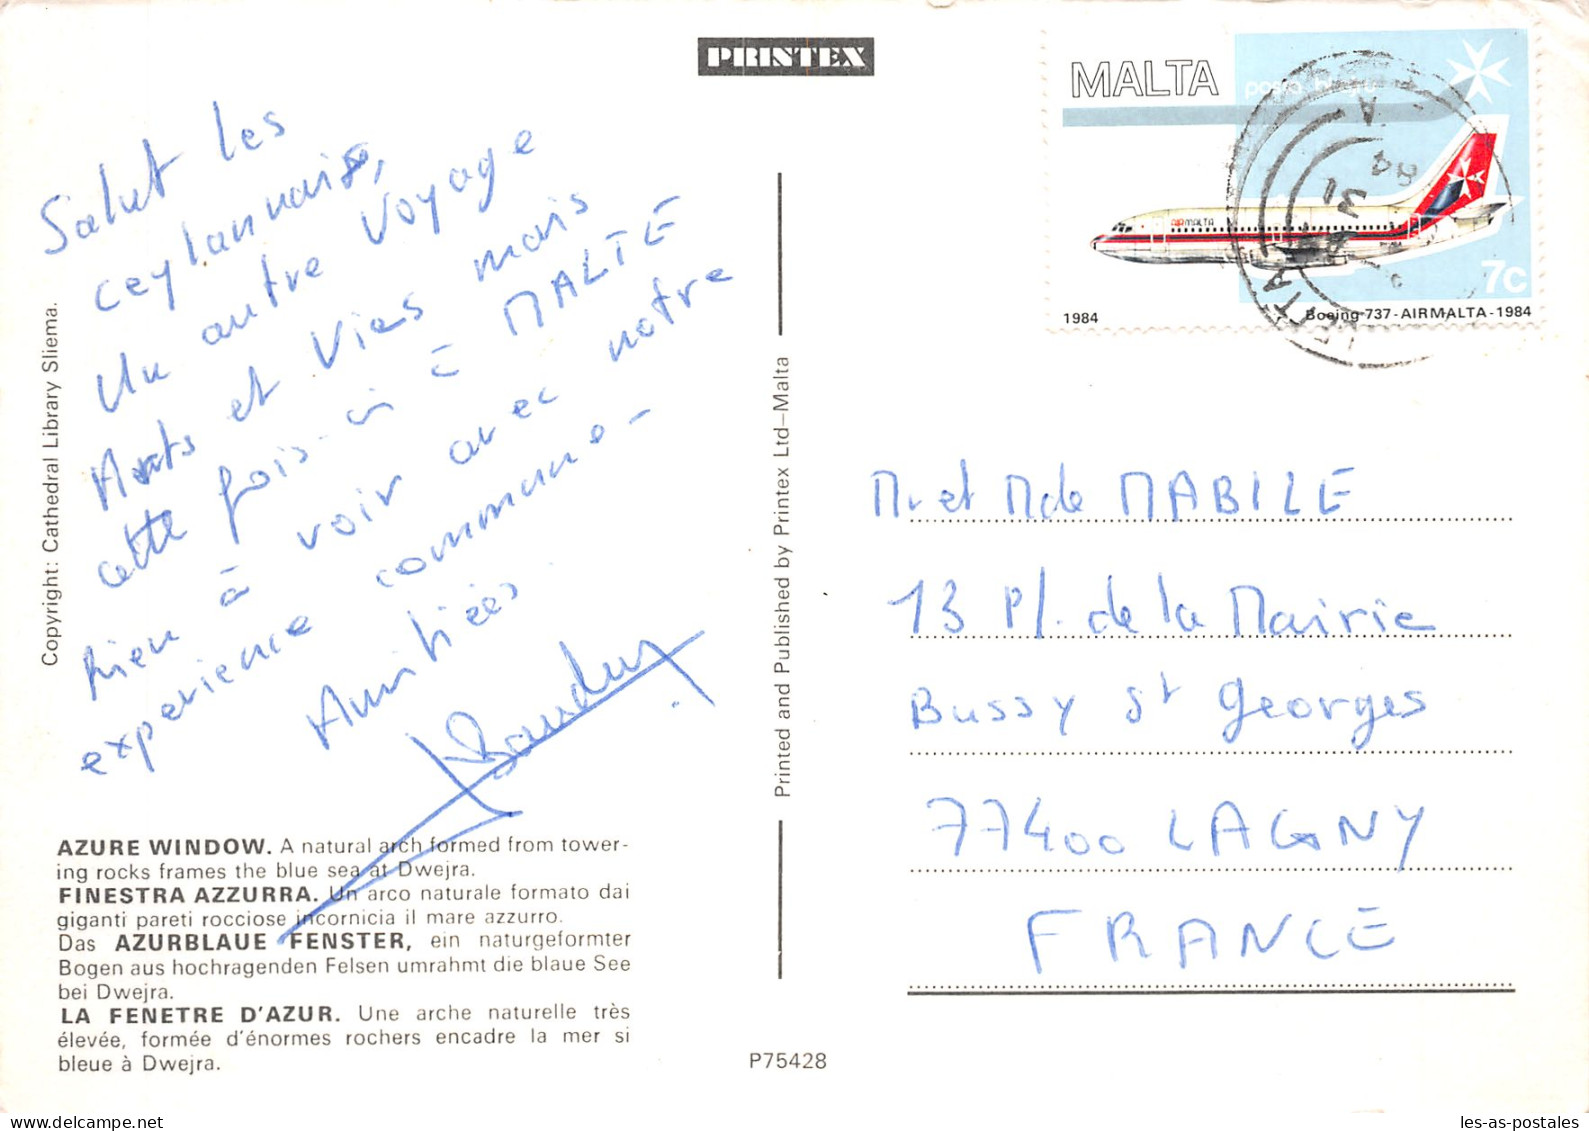 PRINTEX
MALTA
posta bl-ajru
AIRMALTA
7c
1984
Boeing 737 - AIRMALTA - 1984
A
84
31
Salut les
ceylannais,
Un autre voyage
Arts et Vies mais
cette fois-ci à MALTE
rien à voir avec notre
experience commune -
Amitiées.
Copyright: Cathedral Library Sliema.
Printed and Published by Printex Ltd–Malta
Mr et Mde MABILE
13 Pl. de la Mairie
Bussy St Georges
77400 LAGNY
FRANCE
AZURE WINDOW. A natural arch formed from tower-
ing rocks frames the blue sea at Dwejra.
FINESTRA AZZURRA. Un arco naturale formato dai
giganti pareti rocciose incornicia il mare azzurro.
Das AZURBLAUE FENSTER, ein naturgeformter
Bogen aus hochragenden Felsen umrahmt die blaue See
bei Dwejra.
LA FENETRE D'AZUR. Une arche naturelle très
élevée, formée d'énormes rochers encadre la mer si
bleue à Dwejra.
P75428
delcampe.net
les-as-postales